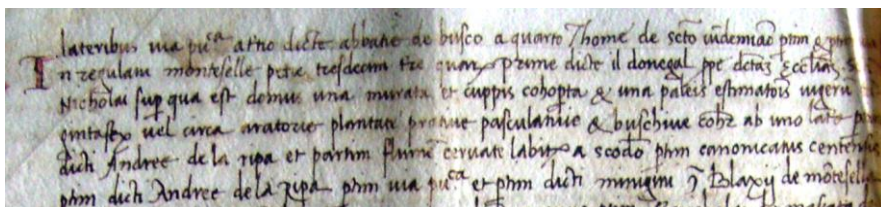 lateribus via pu.ca a t.tio dicte abbatie de busco a quarto Thome de scto
In regulam monteselle petie tresdecim tre quar prime dicte il donegal ppe dctaz eccliaz s
Nicholai sup qua est domus una murata et cuppis cohopta & una paleis estimatois iugeru
vel circa aratorie plantate prative pasculative & buschive cohz ab uno late
dicti Andree de la ripa et partim flumē cervate labitr a scdo ptim canonicatus
ptim dicti Andree de la ripa ptim via pu.ca et ptim dicti minigini q Blaxij de mōteselle